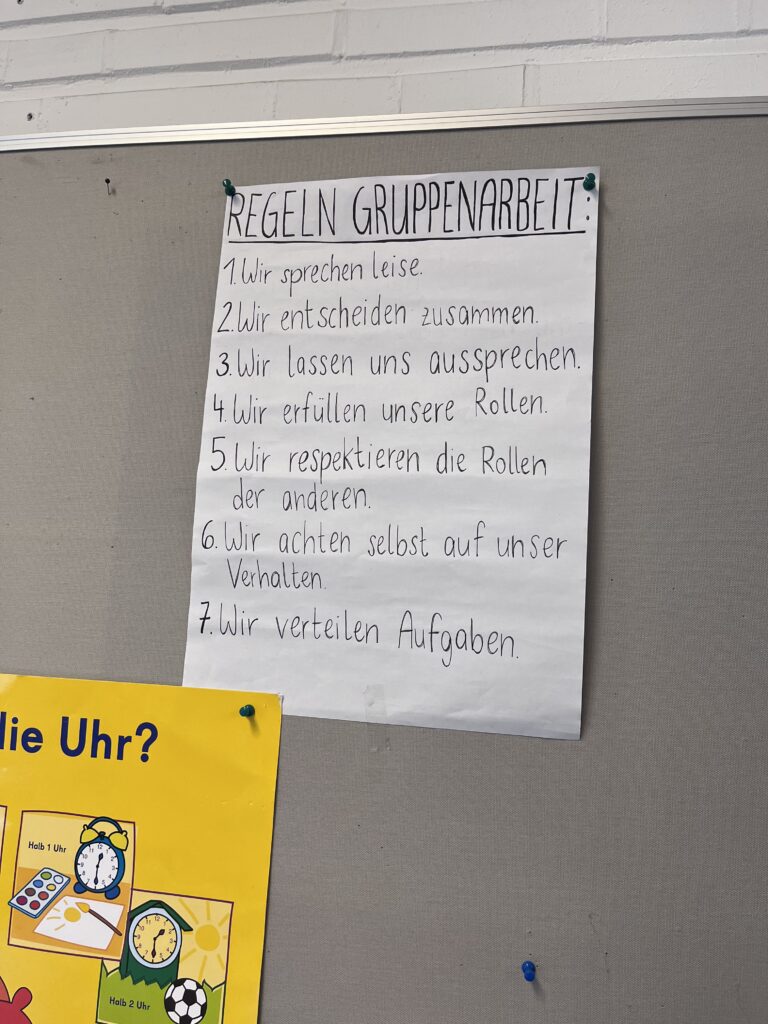 REGELN GRUPPENARBEIT:
1. Wir sprechen leise.
2. Wir entscheiden zusammen.
3. Wir lassen uns aussprechen.
4. Wir erfüllen unsere Rollen.
5. Wir respektieren die Rollen
der anderen.
6. Wir achten selbst auf unser
Verhalten.
7. Wir verteilen Aufgaben.
die Uhr?
Halb 1 Uhr
Halb 2 Uhr